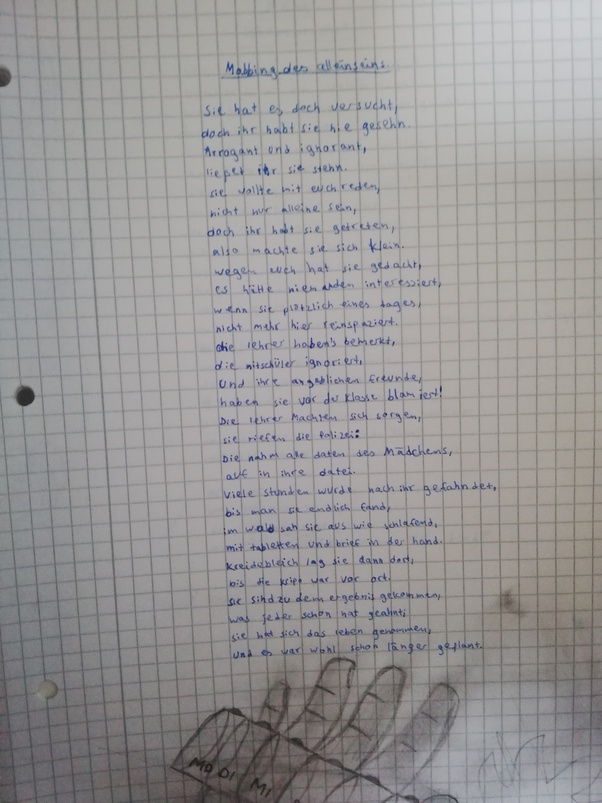 Mobbing des alleinseins.
Sie hat es doch versucht,
doch ihr habt sie nie gesehn.
Arrogant und ignorant,
liepet ihr sie stehn.
sie wollte mit euch reden,
nicht nur alleine sein,
doch ihr habt sie getreten,
also machte sie sich klein.
wegen euch hat sie gedacht,
es hätte niemanden interessiert,
wenn sie plötzlich eines tages,
nicht mehr hier reinspaziert.
die lehrer haben's bemerkt,
die mitschüler ignoriert,
und ihre angeblichen freunde,
haben sie vor der klasse blamiert!
Die lehrer machten sich sorgen,
sie riefen die Polizei:
Die nahm alle daten des Mädchens,
auf in ihre datei.
viele stunden wurde nach ihr gefahndet,
bis man sie endlich fand,
im wald sah sie aus wie schlafend,
mit tabletten und brief in der hand.
kreidebleich lag sie dann dort,
bis die kripo war vor ort.
sie sind zu dem ergebnis gekommen,
was jeder schon hat geahnt;
sie hat sich das leben genommen,
und es war wohl schon länger geplant.
MO DI MI